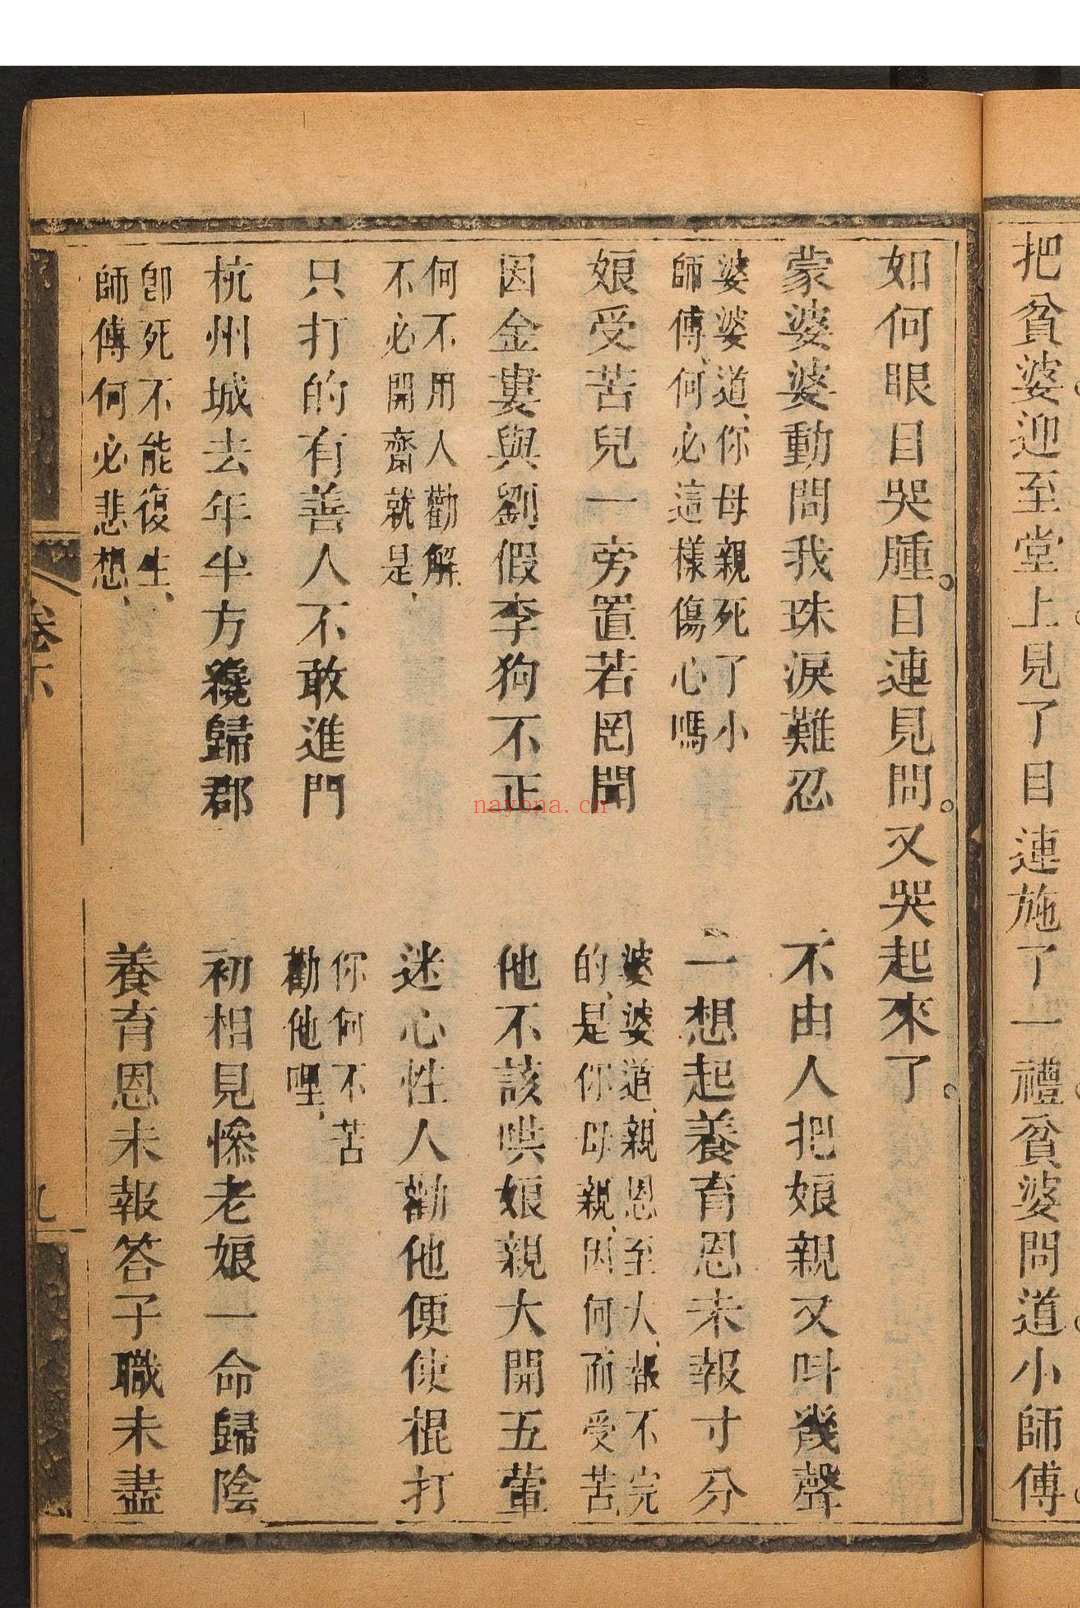 把貧婆迎至堂上見了目連施了一禮貧婆問道小師傅
如何眼目哭腫。目連見問。又哭起來了。
蒙婆婆動問我珠淚難忍
不由人把娘親又呌幾聲
婆婆道、你母親死了小
師傅、何必這樣傷心嗎
一想起養育恩未報寸分
婆婆道、親恩至大、報不完
的、是你母親、因何而受苦
娘受苦兒一旁置若罔聞
他不該哄娘親大開五葷
因金婁與劉假李狗不正
迷心性人勸他便使棍打
何不用人勸解
不必開齋就是、
你何不苦
勸他哩、
只打的有善人不敢進門
初相見慘老娘一命歸陰
杭州城去年半方纔歸郡
養育恩未報答子職未盡
卽死不能復生、
師傅何必悲想、
卷六
九
nayona.cn